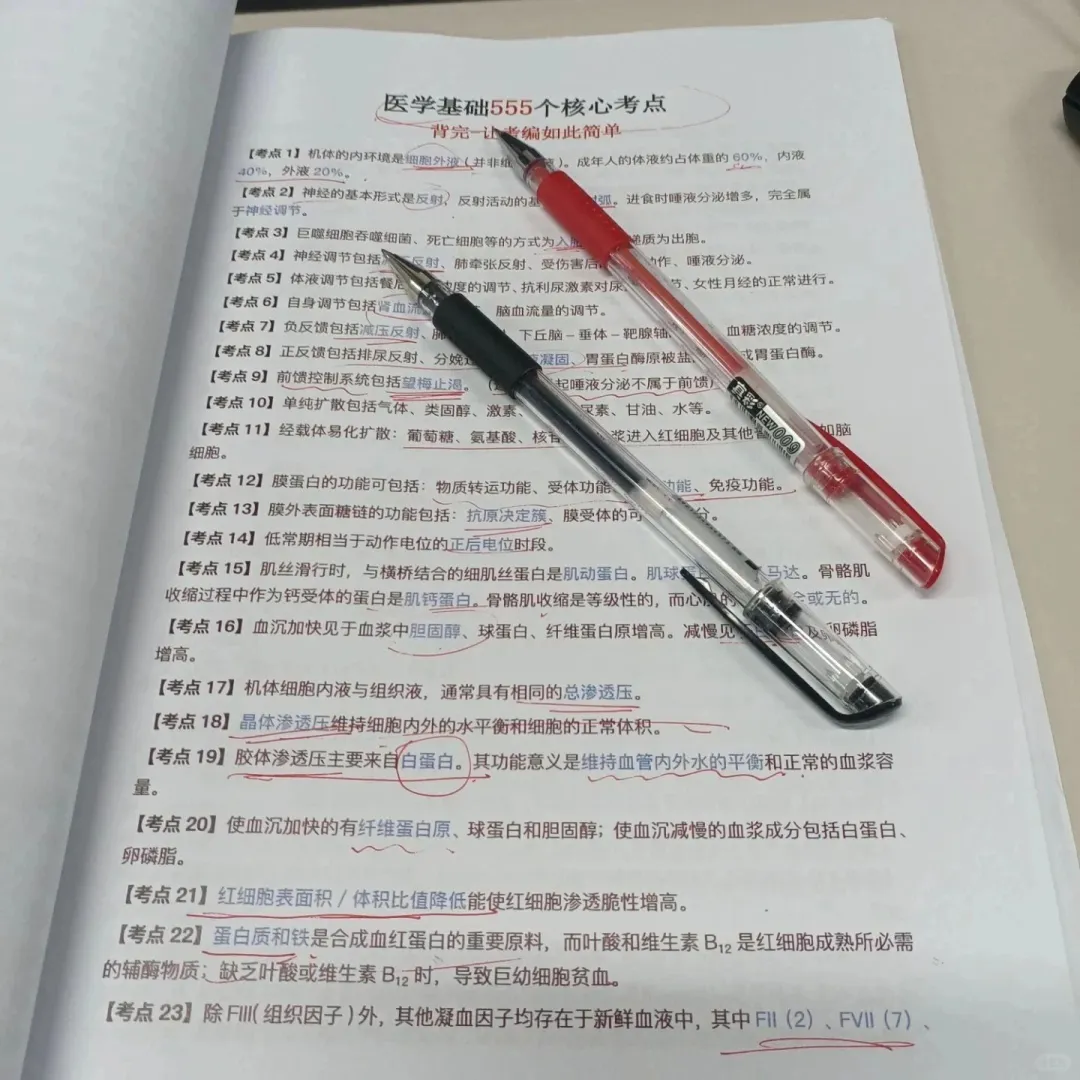 医学基础555个核心考点
背完 让考编如此简单
【考点 1】机体的内环境是细胞外液(并非细 液)。成年人的体液约占体重的 60%，内液
40%，外液 20%。
【考点 2】神经的基本形式是反射，反射活动的基 射弧。进食时唾液分泌增多，完全属
于神经调节。
【考点 3】巨噬细胞吞噬细菌、死亡细胞等的方式为入胞 递质为出胞。
【考点 4】神经调节包括 反射、肺牵张反射、受伤害后 动作、唾液分泌。
【考点 5】体液调节包括餐后 浓度的调节、抗利尿激素对尿 节、女性月经的正常进行。
【考点 6】自身调节包括肾血流 脑血流量的调节。
【考点 7】负反馈包括减压反射、肺 下丘脑－垂体－靶腺轴 血糖浓度的调节。
【考点 8】正反馈包括排尿反射、分娩过 液凝固、胃蛋白酶原被盐 成胃蛋白酶。
【考点 9】前馈控制系统包括望梅止渴。( 起唾液分泌不属于前馈)
【考点 10】单纯扩散包括气体、类固醇、激素、 尿素、甘油、水等。
【考点 11】经载体易化扩散：葡萄糖、氨基酸、核苷 浆进入红细胞及其他 如脑
细胞。
【考点 12】膜蛋白的功能可包括：物质转运功能、受体功能 功能、免疫功能。
【考点 13】膜外表面糖链的功能包括：抗原决定簇、膜受体的可 分。
【考点 14】低常期相当于动作电位的正后电位时段。
【考点 15】肌丝滑行时，与横桥结合的细肌丝蛋白是肌动蛋白。肌球 马达。骨骼肌
收缩过程中作为钙受体的蛋白是肌钙蛋白。骨骼肌收缩是等级性的，而心 的 全或无的。
【考点 16】血沉加快见于血浆中胆固醇、球蛋白、纤维蛋白原增高。减慢见 及卵磷脂
增高。
【考点 17】机体细胞内液与组织液，通常具有相同的总渗透压。
【考点 18】晶体渗透压维持细胞内外的水平衡和细胞的正常体积。
【考点 19】胶体渗透压主要来自白蛋白。其功能意义是维持血管内外水的平衡和正常的血浆容
量。
【考点 20】使血沉加快的有纤维蛋白原、球蛋白和胆固醇；使血沉减慢的血浆成分包括白蛋白、
卵磷脂。
【考点 21】红细胞表面积 / 体积比值降低能使红细胞渗透脆性增高。
【考点 22】蛋白质和铁是合成血红蛋白的重要原料，而叶酸和维生素 B₁₂ 是红细胞成熟所必需
的辅酶物质；缺乏叶酸或维生素 B₁₂ 时，导致巨幼细胞贫血。
【考点 23】除 FⅢ(组织因子)外，其他凝血因子均存在于新鲜血液中，其中 FⅡ（2）、FⅦ（7）、
真彩 NEW009